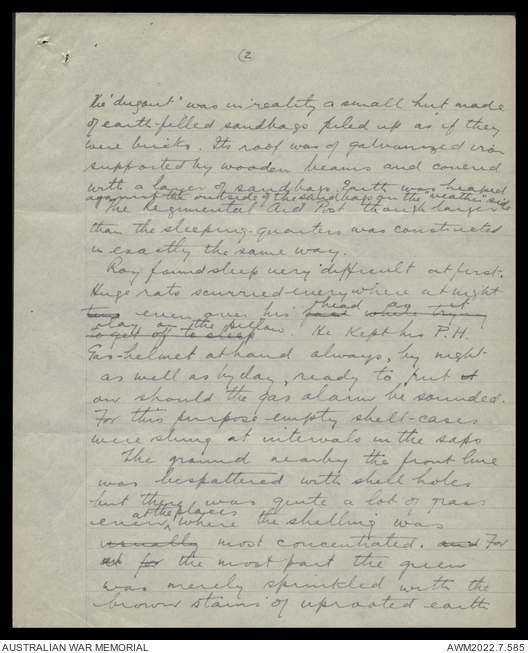 (2
The 'dugout' was in reality a small hut made
of earth-filled sandbags piled up as if they
were bricks. Its roof was of galvanized iron
supported by wooden beams and covered
with a layer of sandbags. Earth was heaped
against the outside of the sandbags on the "weather" side
The Regimental Aid Post though larger
than the sleeping-quarters was constructed
in exactly the same way.
Roy found sleep very difficult at first.
Huge rats scurried everywhere at night
even over his head as it
face while trying
lay on the pillow. He kept his P.H.
to get off to sleep
Gas-helmet at hand always, by night
as well as by day, ready to put it
on should the gas alarm be sounded.
For this purpose empty shell-cases
were slung at intervals in the saps
The ground nearby the front line
was bespattered with shell holes
but there was quite a lot of grass
at the places
even where the shelling was
usually most concentrated. and For
for the most part the green
was merely sprinkled with the
brown stains of uprooted earth
AUSTRALIAN WAR MEMORIAL
AWM2022.7.585